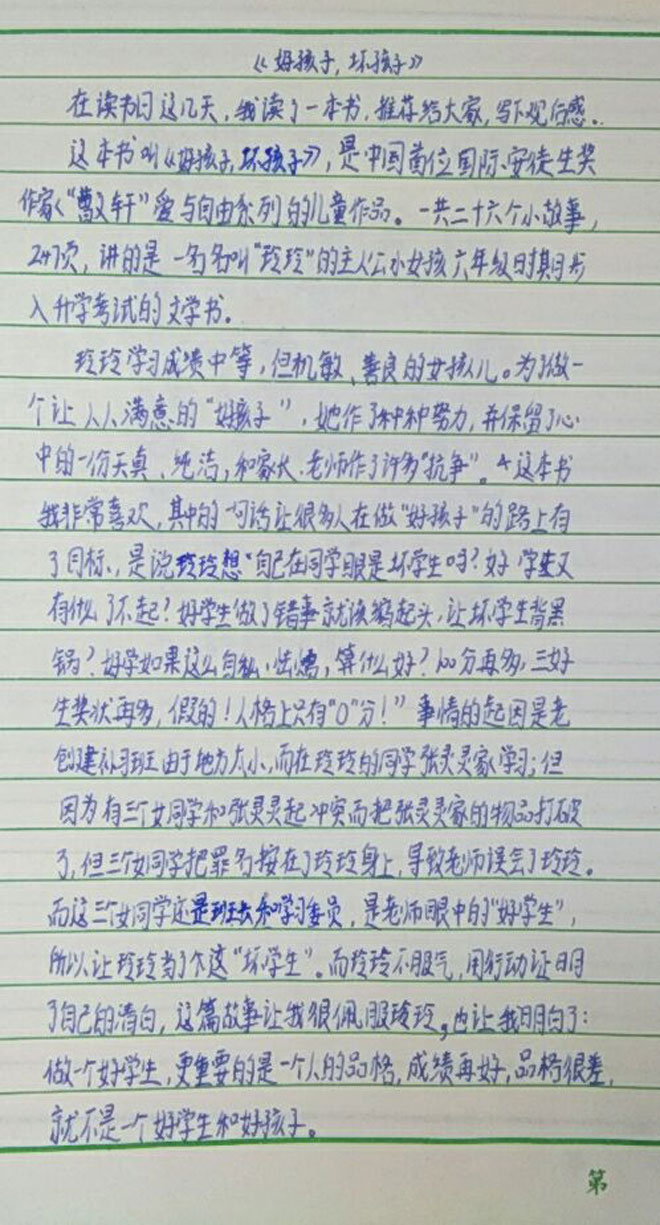 《好孩子,坏孩子》
在读书日这几天,我读了一本书,推荐给大家,写下观后感.
这本书叫《好孩子,坏孩子》,是中国首位国际安徒生奖
作家"曹文轩"爱与自由系列的儿童作品。一共二十六个小故事,
247页,讲的是一名名叫"玲玲"的主人公小女孩六年级时期步
入升学考试的文学书。
玲玲学习成绩中等,但机敏、善良的女孩儿。为了做一
个让人人满意的"好孩子",她作了种种努力,并保留了心
中的一份天真、纯洁,和家长、老师作了许多"抗争"。这本书
我非常喜欢,其中的一句话让很多人在做"好孩子"的路上有
了目标,是说玲玲想"自己在同学眼是坏学生吗?好学生又
有什么了不起?好学生做了错事就该缩起头,让坏学生背黑
锅?好学如果这么自私,怯懦,算什么好?100分再多,三好
生奖状再多,假的!人格上只有"0"分!"事情的起因是老
创建补习班由于地方太小,而在玲玲的同学张灵灵家学习;但
因为有三个女同学和张灵灵起冲突而把张灵灵家的物品打破
了,但三个女同学把罪名按在了玲玲身上,导致老师误会了玲玲。
而这三个女同学还是班长和学习委员,是老师眼中的"好学生",
所以让玲玲当了个这"坏学生"。而玲玲不服气,用行动证明
了自己的清白,这篇故事让我很佩服玲玲,也让我明白了:
做一个好学生,更重要的是一个人的品格,成绩再好,品格很差,
就不是一个好学生和好孩子。
第